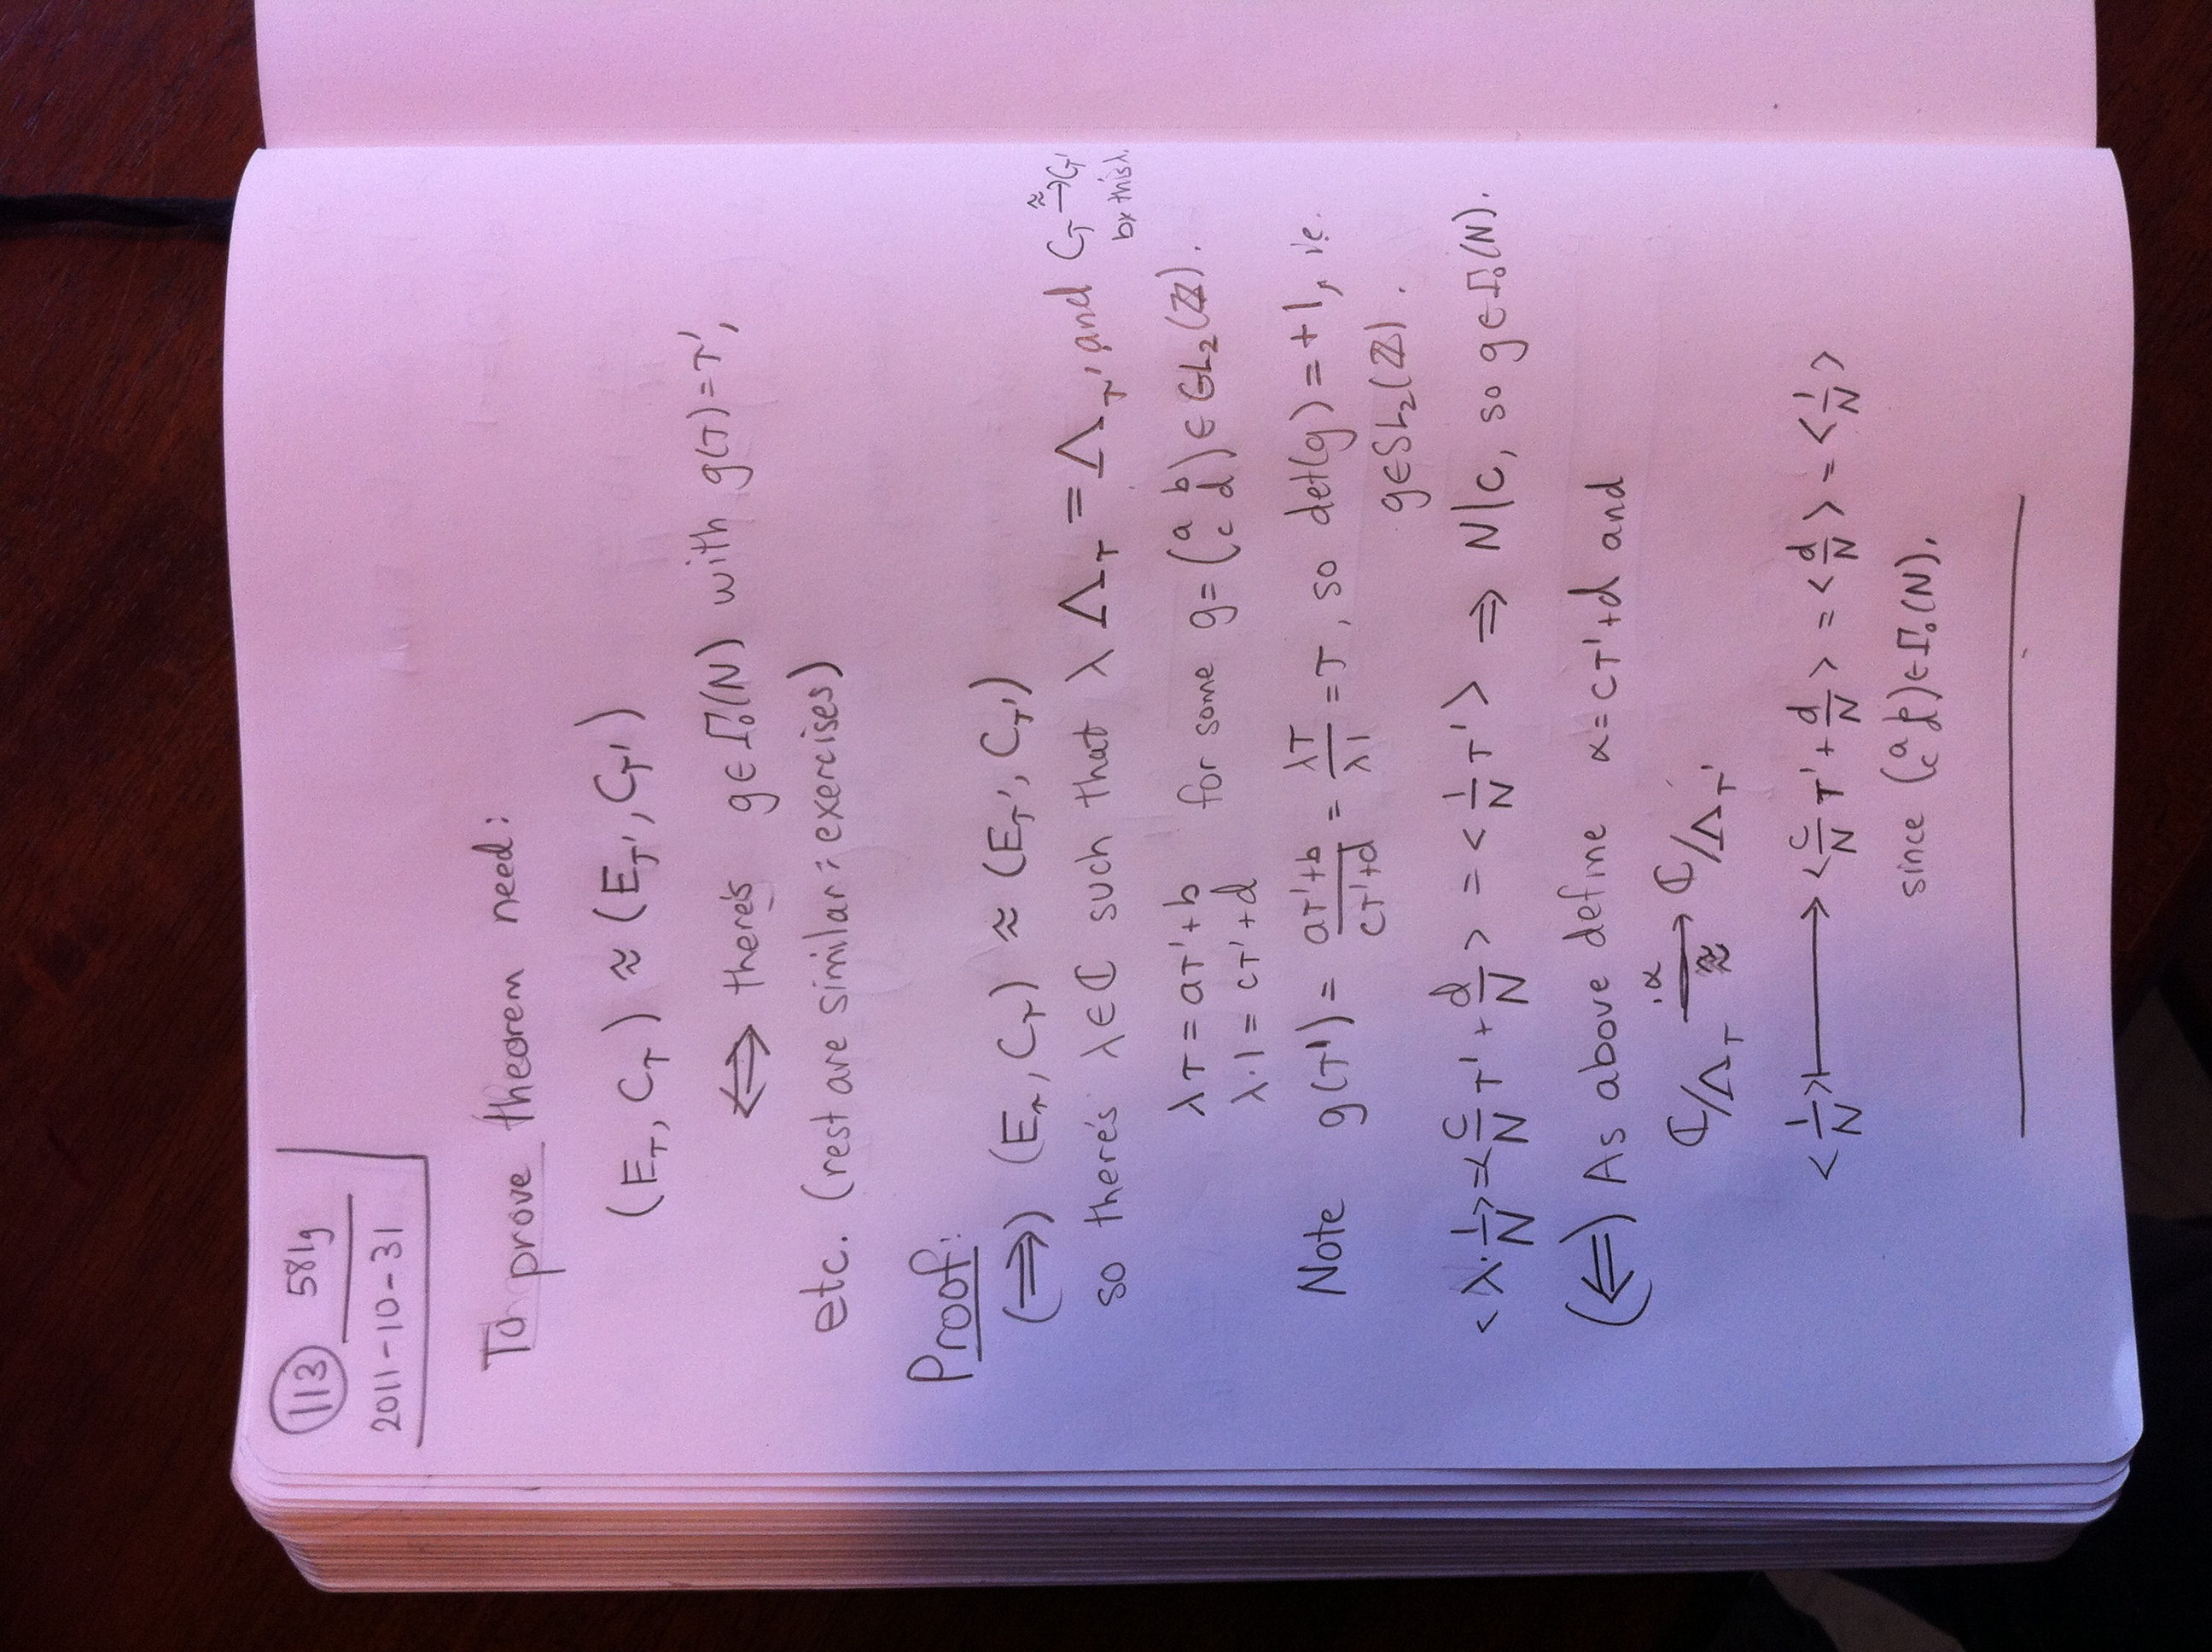 113 581g
2011-10-31
To prove theorem need:
(E_τ, C_τ) ≈ (E_τ', C_τ')
⟺ there's g∈Γ₀(N) with g(τ)=τ',
etc. (rest are similar; exercises)
Proof:
(⟹) (E_τ, C_τ) ≈ (E_τ', C_τ')
so there's λ∈ℂ such that λΛ_τ = Λ_τ' and C_τ ≈→ C_τ'
by this λ.
λτ = aτ'+b for some g=(a b; c d)∈GL₂(ℤ).
λ·1 = cτ'+d
Note g(τ') = (aτ'+b)/(cτ'+d) = λτ/λ1 = τ, so det(g) = +1, ie.
g∈SL₂(ℤ).
<λ·1/N> = <c/N τ' + d/N> = <1/N τ'> ⟹ N|c, so g∈Γ₀(N).
(⟸) As above define α=cτ'+d and
ℂ/Λ_τ ·α→≈ ℂ/Λ_τ'
<1/N> ⟼ <c/N τ' + d/N> = <d/N> = <1/N>
since (a b; c d)∈Γ₀(N).